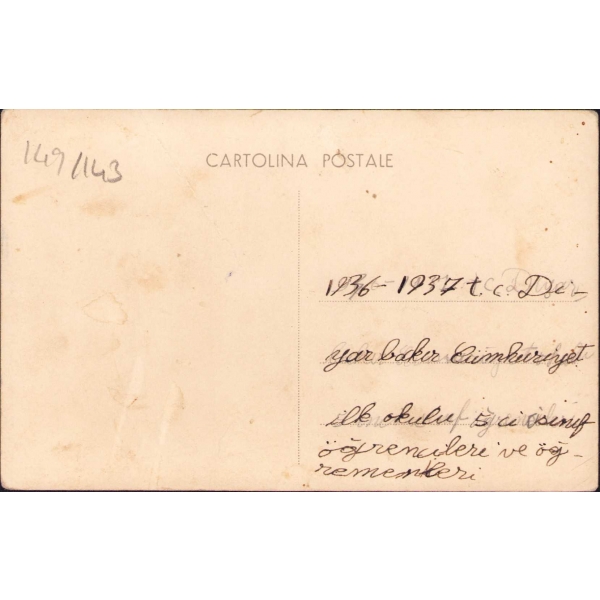 149/143
CARTOLINA POSTALE
1936-1937 t.c. Di-
yarbakır Cumhuriyet
ilk okulu 5 ci sınıf
öğrencileri ve öğ-
remenleri